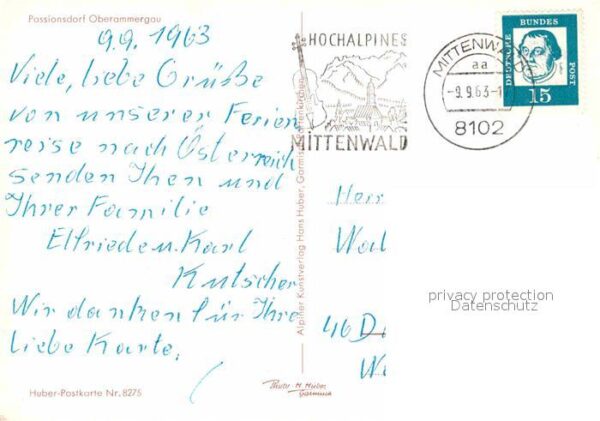 Passionsdorf Oberammergau
9.9.1963
Viele, liebe Grüße
von unserer Ferien
reise nach Österreich
senden Ihen und
Ihrer Familie
Elfriede u. Karl
Kutscher
Wir danken für Ihre
liebe Karte.
Huber-Postkarte Nr. 8275
Alpiner Kunstverlag Hans Huber, Garmisch-Partenkirchen
Photo - H. Huber
Garmisch
HOCHALPINES
MITTENWALD
MITTENWALD
aa
-9.9.63-1
8102
DEUTSCHE BUNDESPOST
15
Herr
46 D
privacy protection
Datenschutz